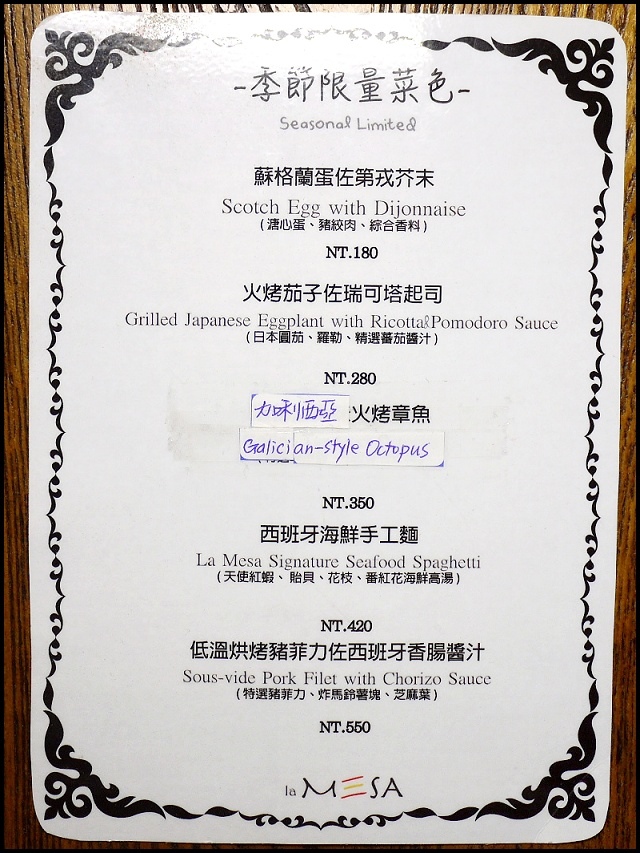 -季節限量菜色-
Seasonal Limited
蘇格蘭蛋佐第戎芥末
Scotch Egg with Dijonnaise
(溏心蛋、豬絞肉、綜合香料)
NT.180
火烤茄子佐瑞可塔起司
Grilled Japanese Eggplant with Ricotta&Pomodoro Sauce
(日本圓茄、羅勒、精選蕃茄醬汁)
NT.280
加利西亞 火烤章魚
Galician-style Octopus
NT.350
西班牙海鮮手工麵
La Mesa Signature Seafood Spaghetti
(天使紅蝦、貽貝、花枝、番紅花海鮮高湯)
NT.420
低溫烘烤豬菲力佐西班牙香腸醬汁
Sous-vide Pork Filet with Chorizo Sauce
(特選豬菲力、炸馬鈴薯塊、芝麻葉)
NT.550
la MESA